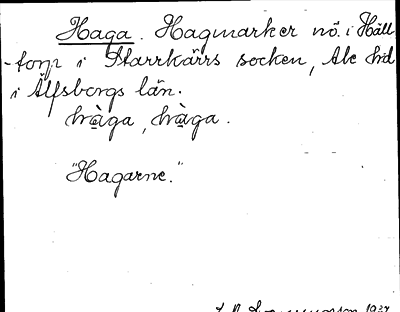 Haga. Hagmarker nö. i Häll
-torp i Starrkärrs socken, Ale hd
i Älfsborgs län.
"Hagarne."
1937